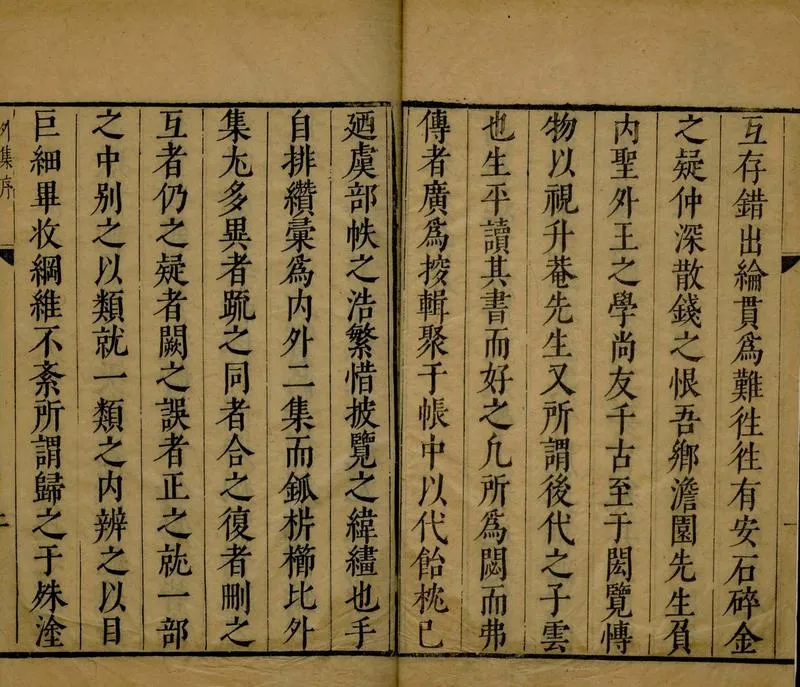 互存錯出綸貫爲難徃徃有安石碎金
之疑仲深散錢之恨吾鄉澹園先生負
内聖外王之學尚友千古至于閎覽愽
物以視升菴先生又所謂後代之子雲
也生平讀其書而好之凢所爲閟而弗
傳者廣爲搜輯聚于帳中以代飴枕已
廼虞部帙之浩繁惜披覽之緯繣也手
自排纘彚爲内外二集而鈲析櫛比外
集尤多異者䟽之同者合之復者刪之
互者仍之疑者闕之誤者正之就一部
之中别之以類就一類之内辨之以目
巨細畢收綱維不紊所謂歸之于殊塗
外集序
二